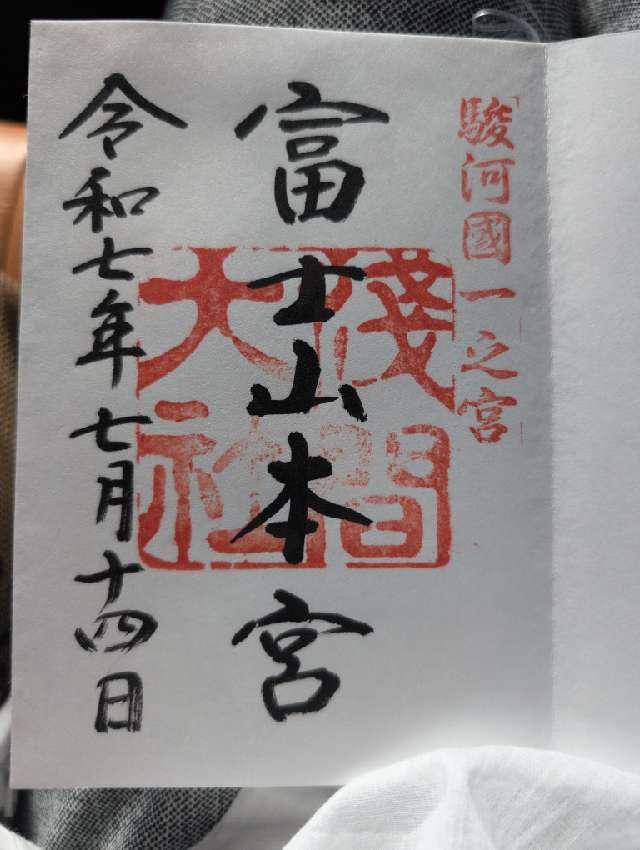 駿河國一之宮
富士山本宮
淺間
大社
令和七年七月十四日